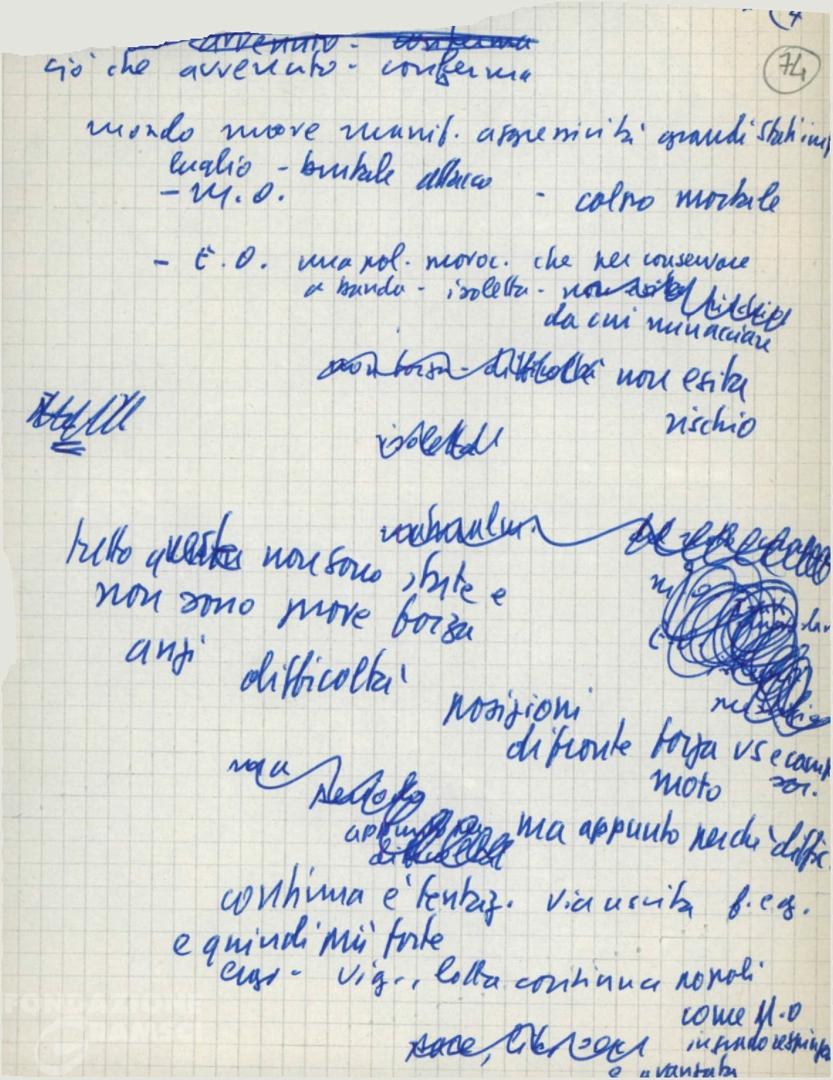 (4
74
avvenuto - conferma
ciò che avvenuto - conferma
mondo nuove manif. aggressività grandi stati imp
luglio - brutale attacco
- M.O. - colpo mortale
- E.O. una pol. provoc. che per conservare
a banda - isoletta -
da cui minacciare
difficoltà non esita
rischio
isoletta
tutto questo non sono state e
non sono prove forza
anzi
difficoltà
posizioni
di fronte forza US e camp
moto soc.
ma
ma appunto perché diffic.
continua è tentaz. via uscita f. e g.
e quindi più forte
vig., lotta continua popoli
come M.O
pace, in grado respinge
e avanzata
FONDAZIONE
GRAMSCI